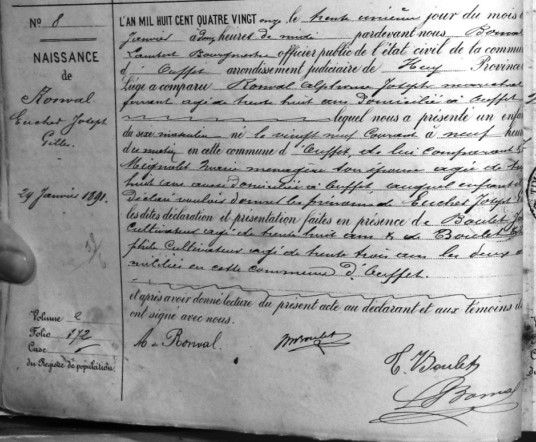 No 8
NAISSANCE
de
Ronval
Euchet Joseph
Gille.
29 Janvier 1891.
Volume 2
Folio 172
Case
du Registre de population
L'AN MIL HUIT CENT QUATRE VINGT onze le trente unième jour du mois d
Janvier à deux heures de midi pardevant nous
Lambert Bourgmestre officier public de l'état civil de la commu
d'Ouffet arrondissement judiciaire de Huy Province
Liége a comparu Ronval Alphonse Joseph maréchal
ferrant agé de trente huit ans domicilié à Ouffet
lequel nous a présenté un enfan
du sexe masculin né le vingt neuf Courant à neuf heur
du matin en cette commune d'Ouffet, de lui comparant &
Mignolet Marie menagère son épouse agée de tr
huit ans aussi domiciliée à Ouffet auquel enfant
déclaré vouloir donner les prénoms de Euchet Joseph
les dites déclaration et présentation faites en présence de Boulet
Cultivateur agé de trente huit ans & de Boulet
phile Cultivateur agé de trente trois ans les deux
miciliés en cette commune d'Ouffet.
et après avoir donné lecture du présent acte au déclarant et aux témoins
ont signé avec nous.
A de Ronval. Boulet
T. Boulet
L Bonval